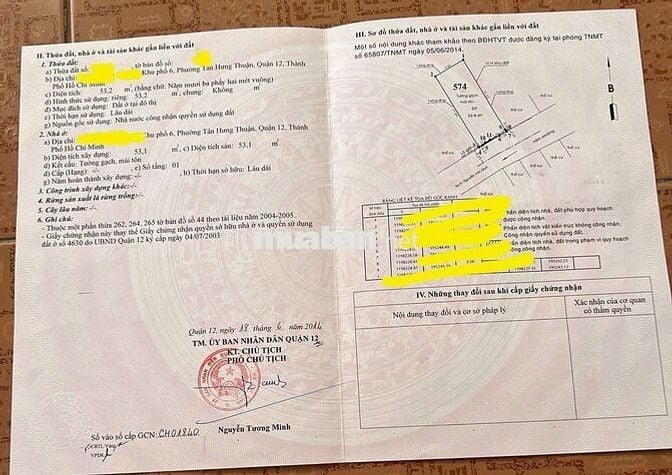 II. Thửa đất, nhà ở và tài sản khác gắn liền với đất
1. Thửa đất:
a) Thửa đất số: tờ bản đồ số:
b) Địa chỉ: Khu phố 6, Phường Tân Hưng Thuận, Quận 12, Thành
Phố Hồ Chí Minh
c) Diện tích: 53,2 m², (bằng chữ: Năm mươi ba phẩy hai mét vuông)
d) Hình thức sử dụng: riêng: 53,2 m²; chung: Không m²
đ) Mục đích sử dụng: Đất ở tại đô thị
e) Thời hạn sử dụng: Lâu dài
g) Nguồn gốc sử dụng: Nhà nước công nhận quyền sử dụng đất
2. Nhà ở:
a) Địa chỉ: Khu phố 6, Phường Tân Hưng Thuận, Quận 12, Thành
Phố Hồ Chí Minh
b) Diện tích xây dựng: 53,1 m², c) Diện tích sàn: 53,1 m²
d) Kết cấu: Tường gạch, mái tôn
đ) Cấp (Hạng): -/- e) Số tầng: 01
g) Năm hoàn thành xây dựng: -/- h) Thời hạn sở hữu: Lâu dài
3. Công trình xây dựng khác: -/-
4. Rừng sản xuất là rừng trồng: -/-
5. Cây lâu năm: -/-
6. Ghi chú:
- Thuộc một phần thửa 262, 264, 265 tờ bản đồ số 44 theo tài liệu năm 2004-2005.
- Giấy chứng nhận này thay thế Giấy chứng nhận quyền sở hữu nhà ở và quyền sử dụng
đất ở số 4630 do UBND Quận 12 ký cấp ngày 04/07/2003
Quận 12, ngày 18 tháng 6 năm 2014
TM. ỦY BAN NHÂN DÂN QUẬN 12
KT. CHỦ TỊCH
PHÓ CHỦ TỊCH
Nguyễn Tương Minh
Số vào sổ cấp GCN: CH01840
III. Sơ đồ thửa đất, nhà ở và tài sản khác gắn liền với đất
Một số nội dung khác tham khảo theo BĐHTVT được đăng ký tại phòng TNMT
số 65807/TNMT ngày 05/06/2014
574
B
BẢNG LIỆT KÊ TỌA ĐỘ GÓC RANH
Phần diện tích nhà, đất phù hợp quy hoạch
được công nhận.
Phần diện tích vật kiến trúc không công nhận.
Công nhận quyền sử dụng đất.
Phần diện tích nhà, đất trong phạm vi quy hoạch
IV. Những thay đổi sau khi cấp giấy chứng nhận
Nội dung thay đổi và cơ sở pháp lý
Xác nhận của cơ quan
có thẩm quyền